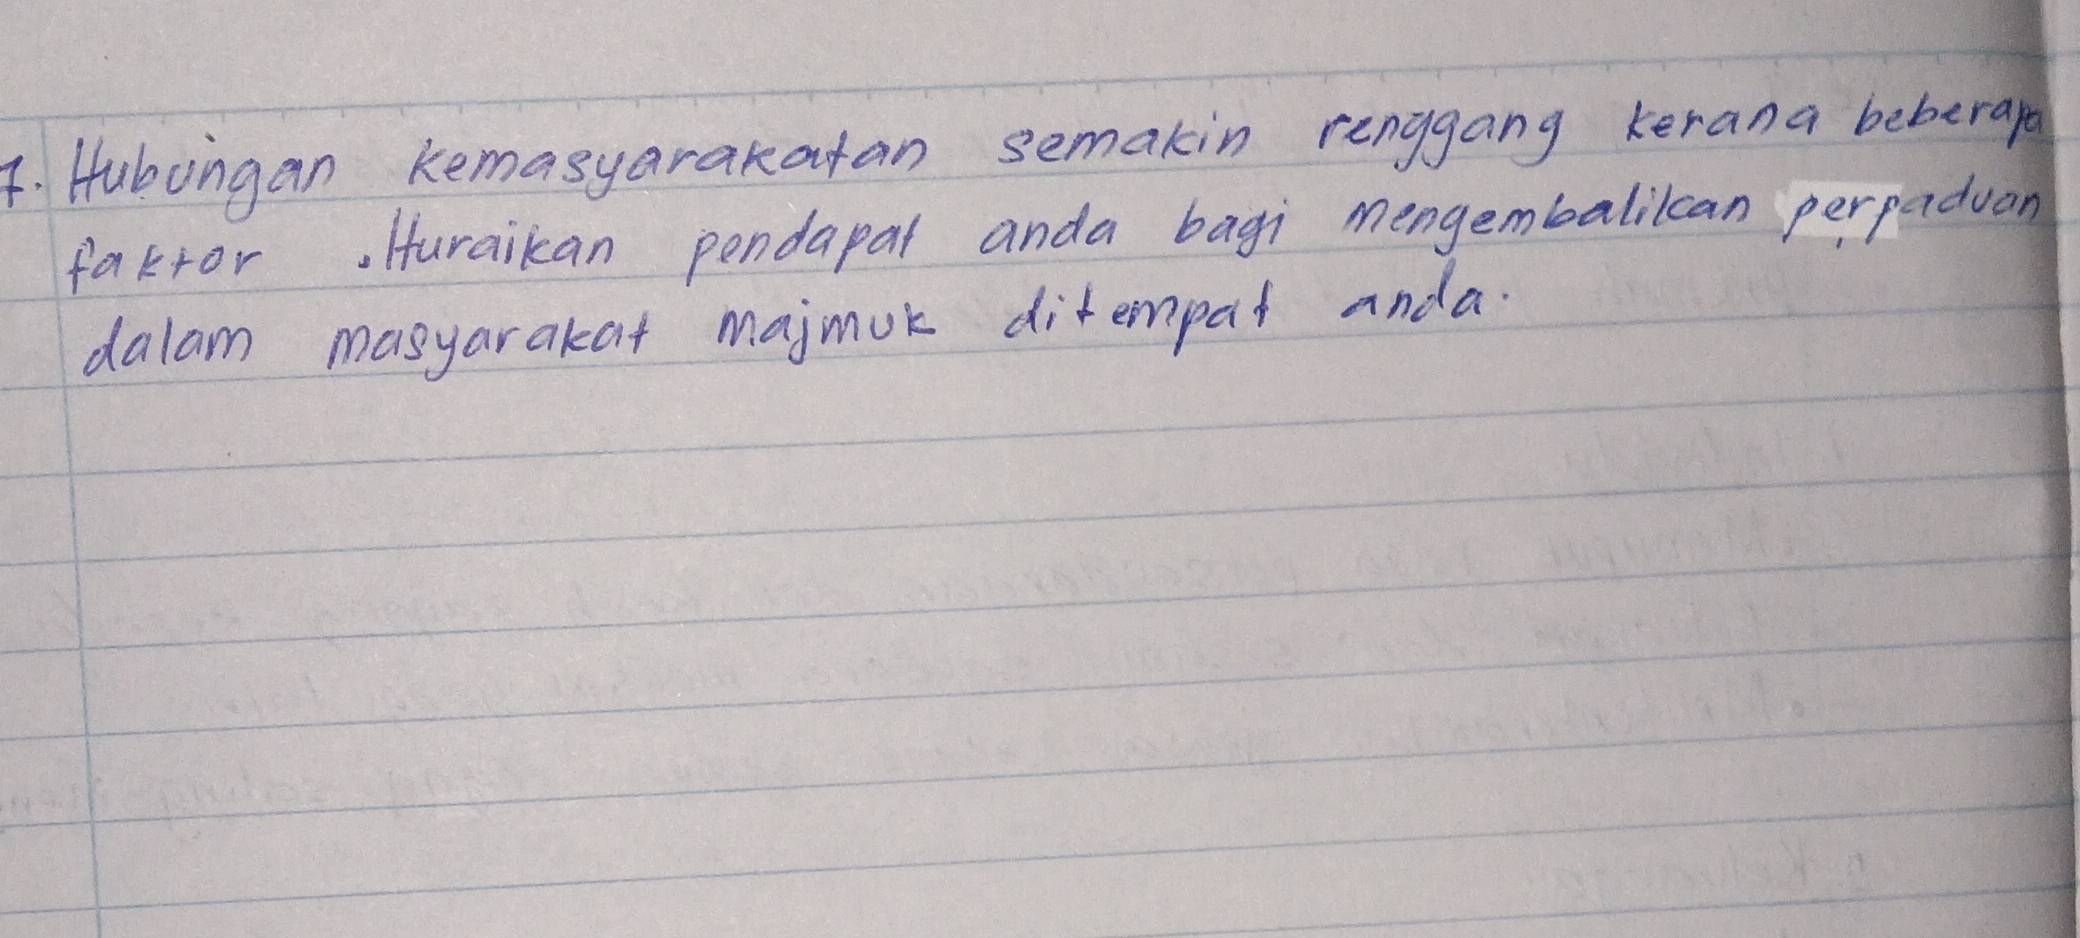 7. Hubungan kemasyarakatan semakin renggang kerana beberapa
faktor . Huraikan pendapat anda bagi mengembalikan perpaduan
dalam masyarakat majmuk ditempat anda.